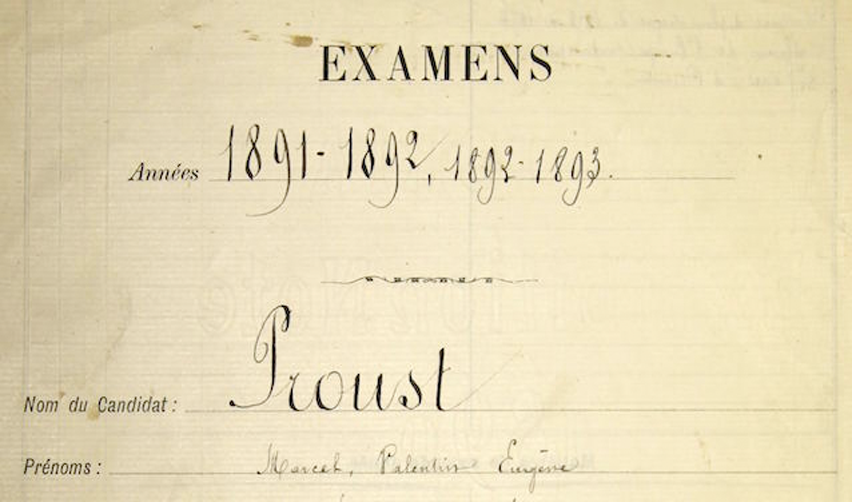 EXAMENS
Années 1891-1892, 1892-1893.
Nom du Candidat : Proust
Prénoms : Marcel, Valentin Eugène